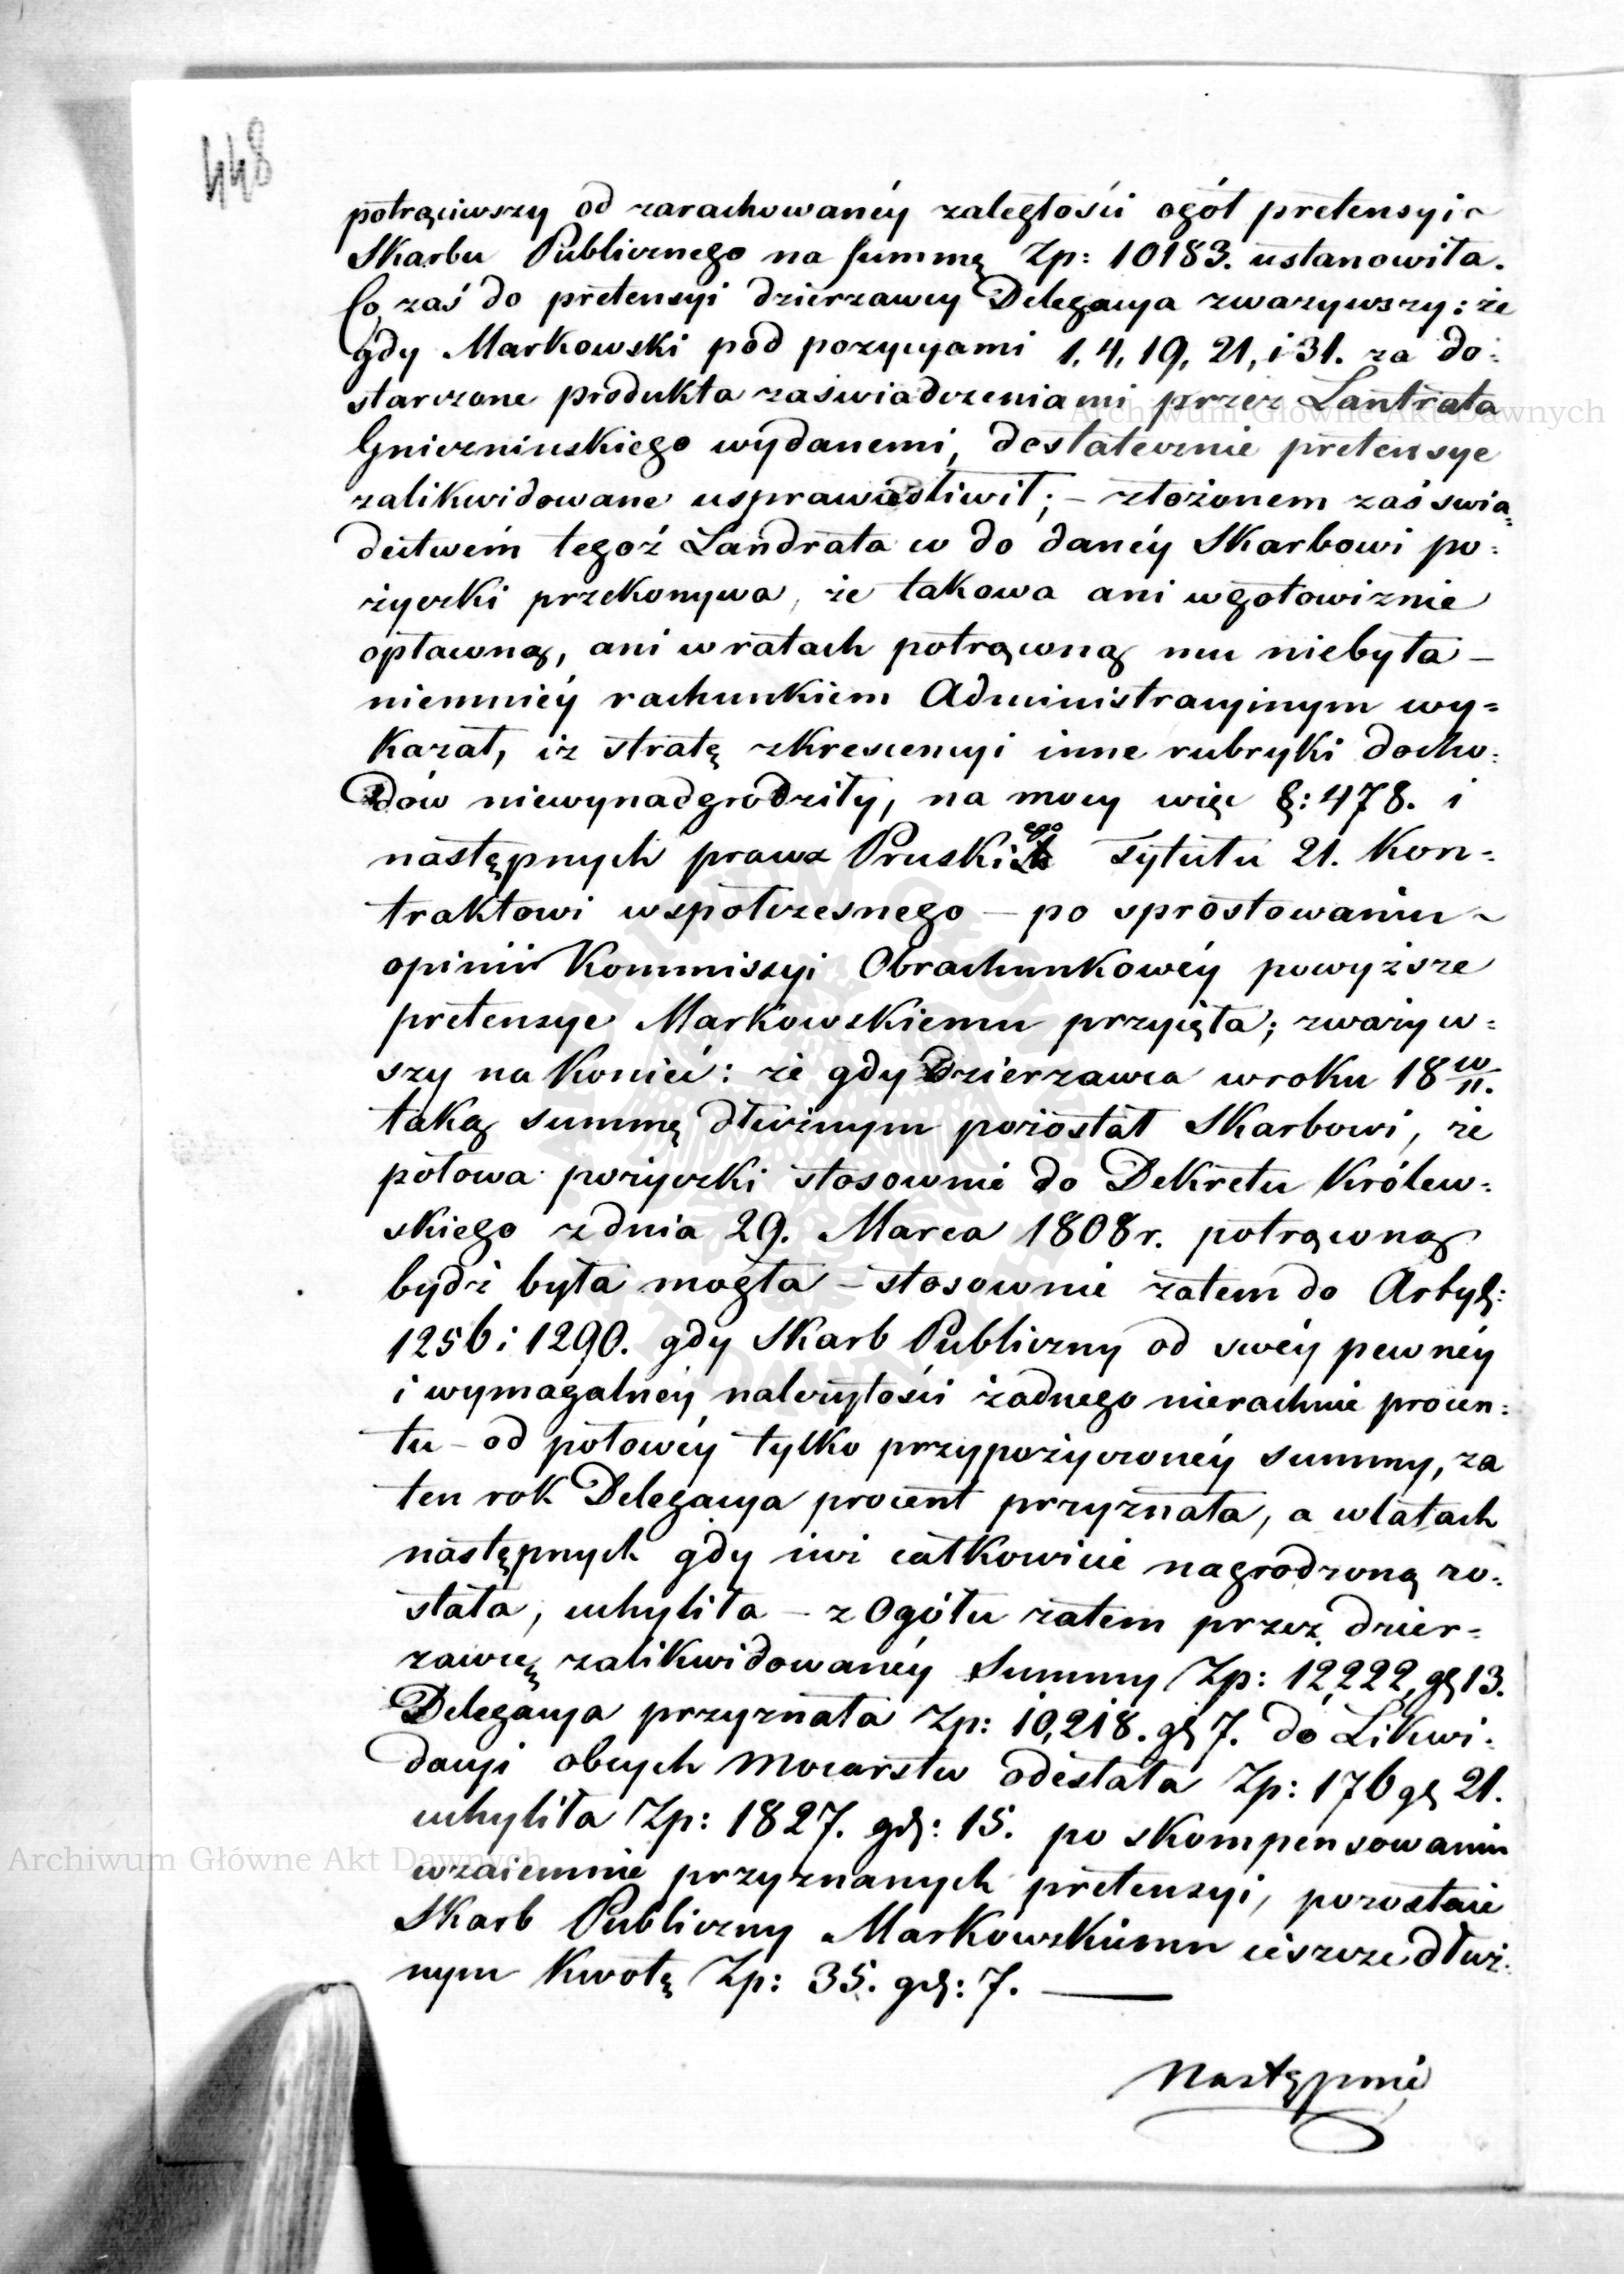 448
potrąciwszy od zarachowanéy zaległości ogół pretensyi
Skarbu Publicznego na summę Zp: 10183. ustanowiła.
Co zaś do pretensyi dzierzawcy Delegacya zwazywszy: że
gdy Markowski pod pozycyami 1, 4, 19, 21, i 31. za do:
starczone produkta zaświadczeniami przez Lantrata
Gnieznińskiego wydanemi, dostatecznie pretensye
zalikwidowane usprawiedliwił; – złożonem zaś swia=
dectwem tegoż Landrata w do daney Skarbowi po:
życzki przekonywa, że takowa ani wgotowiznie
opłacną, ani w ratach potrąconą mu niebyła –
niemniéy rachunkiem Administracyinym wy=
kazał, iż stratę zkrescencyi inne rubryki docho:
dów niewynadgrodziły, na mocy więc §: 478. i
następnych prawa Pruskiego Tytułu 21. Kon=
traktowi wspołczesnego – po sprostowaniu
opinii Kommissyi Obrachunkowéy powyższe
pretensye Markowskiemu przyięła; zważyw:
szy na koniec: że gdy Dzierzawca wroku 18 10/11.
taką summę dłużnym pozostał Skarbowi, że
połowa pożyczki stosownie do Dekretu Królew:
skiego zdnia 29. Marca 1808 r. potrąconą
bydź była mogła – stosownie zatem do Artyk:
1256 i 1290. gdy Skarb Publiczny od swéy pewnéy
i wymagalnéy należytości żadnego nierachuie procen:
tu – od połowéy tylko przypożyczonéy summy, za
ten rok Delegacya procent przyznała, a wlatach
następnych gdy iuż całkowicie nagrodzoną zo:
stała, uchyliła – z Ogółu zatem przez dzier=
zawcę zalikwidowanéy Summy Zp: 12,222, gr 13.
Delegacya przyznała Zp: 10,218. gr 7. do Likwi:
dacyi obcych Mocarstw odesłała Zp: 176 gr 21.
uchyliła Zp: 1827. gr: 15. po skompensowaniu
wzaiemnie przyznanych pretensyi, pozostaie
Skarb Publiczny Markowskiemu ieszcze dłuż:
nym Kwotę Zp: 35. gr: 7.
Następnie
Archiwum Główne Akt Dawnych
Archiwum Główne Akt Dawnych